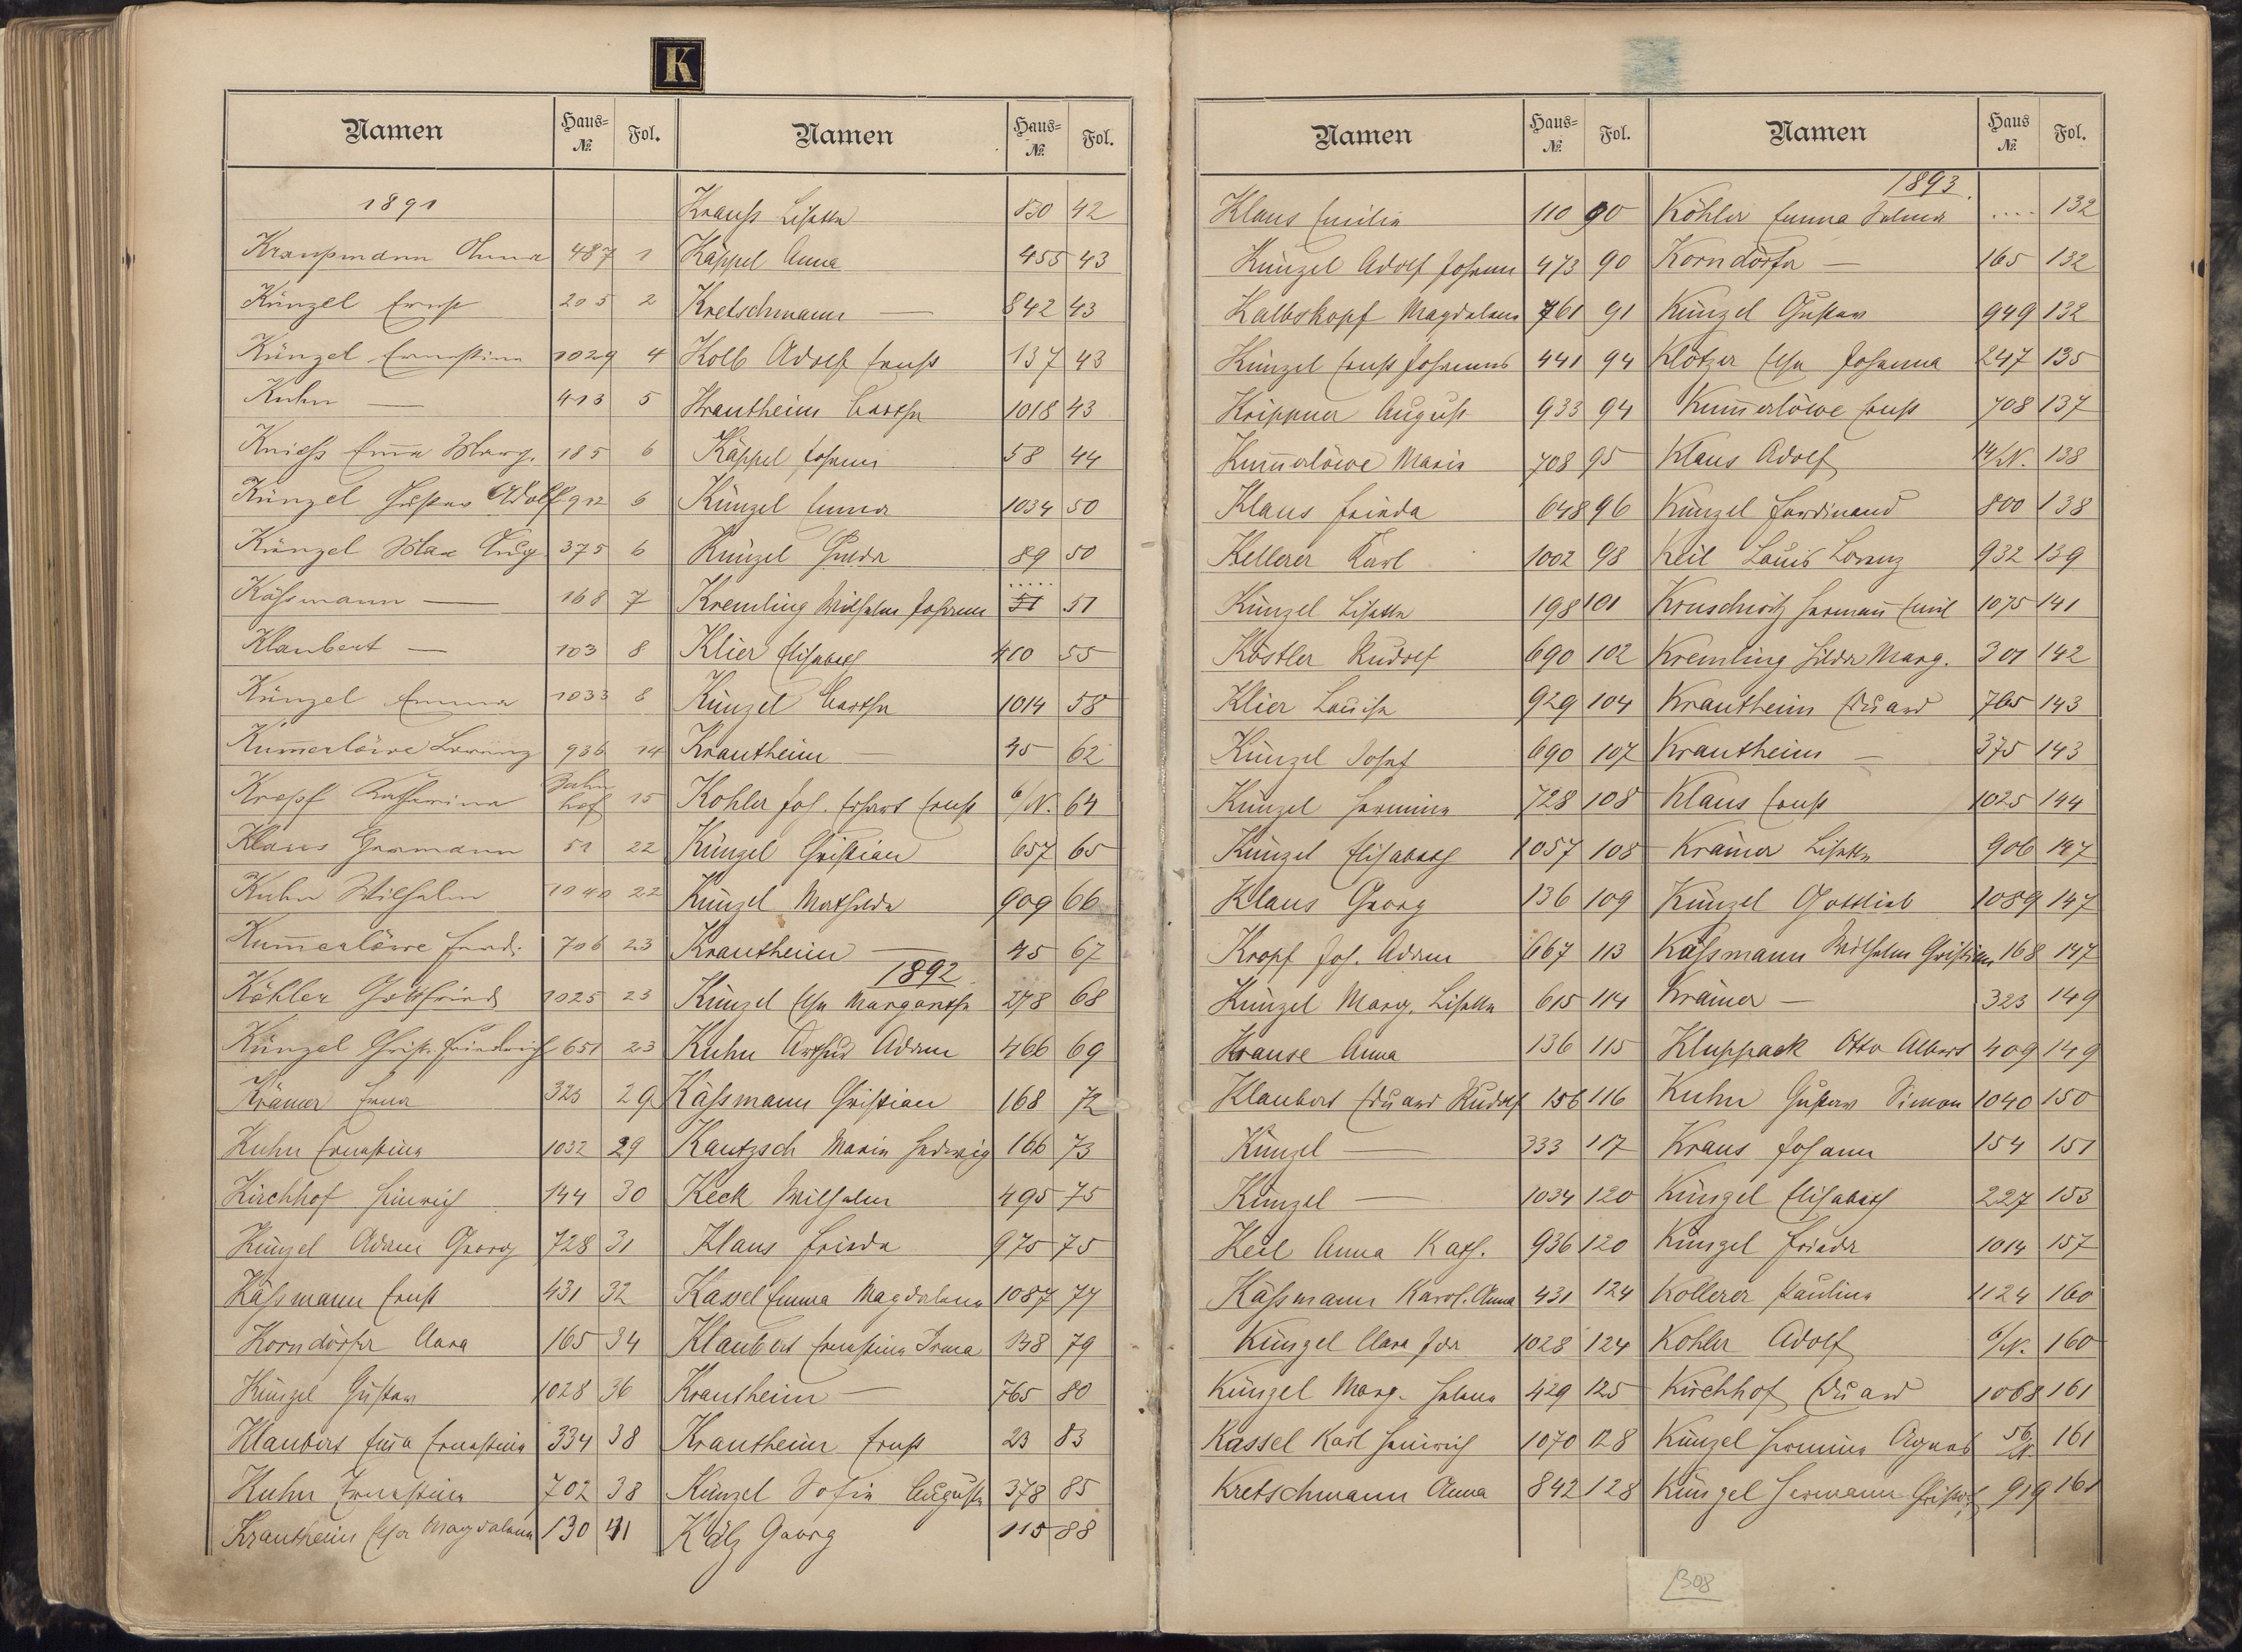 K
Namen Haus-№ Fol.
1891
Kraupmann Anna 487 1
Künzel Ernst 205 2
Künzel Ernestine 1029 4
Kuhn — 413 5
Em̅a Marg. 185 6
Künzel Gustav Adolf 912 6
Künzel Max Aug 375 6
Käßmann — 168 7
Klaubert — 103 8
Künzel Emma 1033 8
Kum̅erlöwe Lorenz 936 14
Kropf Katharina Bahnhof 15
Klaus Hermann 51 22
Kuhn Wilhelm 1040 22
Kum̅erlöwe Ferd. 706 23
Köhler Gottfried 1025 23
Künzel Christ. Friedrich 651 23
Krämer Erna 323 29
Kuhn Ernestine 1032 29
Kirchhof Heinrich 144 30
Künzel Adam Georg 728 31
Käßmann Ernst 431 32
Korndörfer Clara 165 34
Künzel Gustav 1028 36
Klaubert Em̅a Ernestine 334 38
Kuhn Ernestine 702 38
Krautheim Elsa Magdalena 130 41
Namen Haus-№ Fol.
Krauß Lisette 830 42
Käppel Anna 455 43
Kretschmann — 842 43
Kolb Adolf Ernst 137 43
Krautheim Bertha 1018 43
Käppel Johann 58 44
Künzel Emma 1034 50
Künzel Hulda 89 50
Kremling Wilhelm Johann 51 51
Klier Elisabeth 410 55
Künzel Bertha 1014 58
Krautheim — 45 62
Köhler Joh. Erhard Ernst 6/N. 64
Künzel Christian 657 65
Künzel Mathilde 909 66
Krautheim — 45 67
1892
Künzel Elsa Margaretha 278 68
Kuhn Arthur Adam 466 69
Käßmann Christian 168 72
Kautzsch Maria Hedwig 166 73
Keck Wilhelm 495 75
Klaus Frieda 975 75
Kassel Emma Magdalena 1087 77
Klaubert Ernestine Irma 138 79
Krautheim — 765 80
Krautheim Ernst 23 83
Künzel Sofie Auguste 378 85
Kälz Georg 115 88
Namen Haus-№ Fol.
Klaus Emilie 110 90
Künzel Adolf Johann 473 90
Kalbskopf Magdalena 761 91
Künzel Ernst Johannes 441 94
Krippner August 933 94
Kum̅erlöwe Maria 708 95
Klaus Frieda 648 96
Kellerer Karl 1002 98
Künzel Lisette 198 101
Köstler Rudolf 690 102
Klier Louise 929 104
Künzel Josef 690 107
Künzel Hermine 728 108
Künzel Elisabeth 1057 108
Klaus Georg 136 109
Kropf Joh. Adam 667 113
Künzel Marg. Lisette 615 114
Krause Anna 136 115
Klaubert Eduard Rudolf 156 116
Künzel — 333 117
Künzel — 1034 120
Keil Anna Kath. 936 120
Käßmann Karol. Anna 431 124
Künzel Clara Ida 1028 124
Künzel Marg. Helene 429 125
Kassel Karl Heinrich 1070 128
Kretschmann Anna 842 128
Namen Haus № Fol.
1893.
Köhler Emma Selma .... 132
Korndörfer — 165 132
Künzel Gustav 949 132
Klötzer Elsa Johanna 247 135
Kum̅erlöwe Ernst 708 137
Klaus Adolf 14/N. 138
Künzel Ferdinand 800 138
Keil Louis Lorenz 932 139
Kruschwitz Hermann Emil 1075 141
Kremling Hilda Marg. 301 142
Krautheim Eduard 765 143
Krautheim — 375 143
Klaus Ernst 1025 144
Krämer Lisette 906 147
Künzel Gottlieb 1089 147
Käßmann Wilhelm Christian 168 147
Krämer — 323 149
Kluppack Otto Albert 409 149
Kuhn Gustav Simon 1040 150
Kraus Johann 154 151
Künzel Elisabeth 227 153
Künzel Frieda 1014 157
Kollerer Pauline 1124 160
Köhler Adolf 6/N. 160
Kirchhof Eduard 1068 161
Künzel Hermine Agnes 56/N. 161
Künzel Hermann Christof 919 161
308